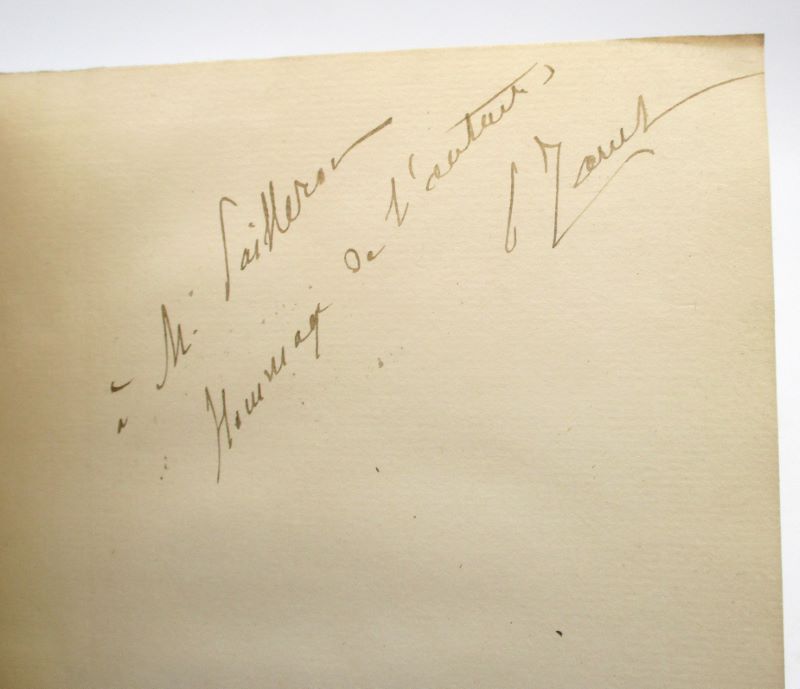 à M. Pailleron
Hommage de l'auteur,
P Janet